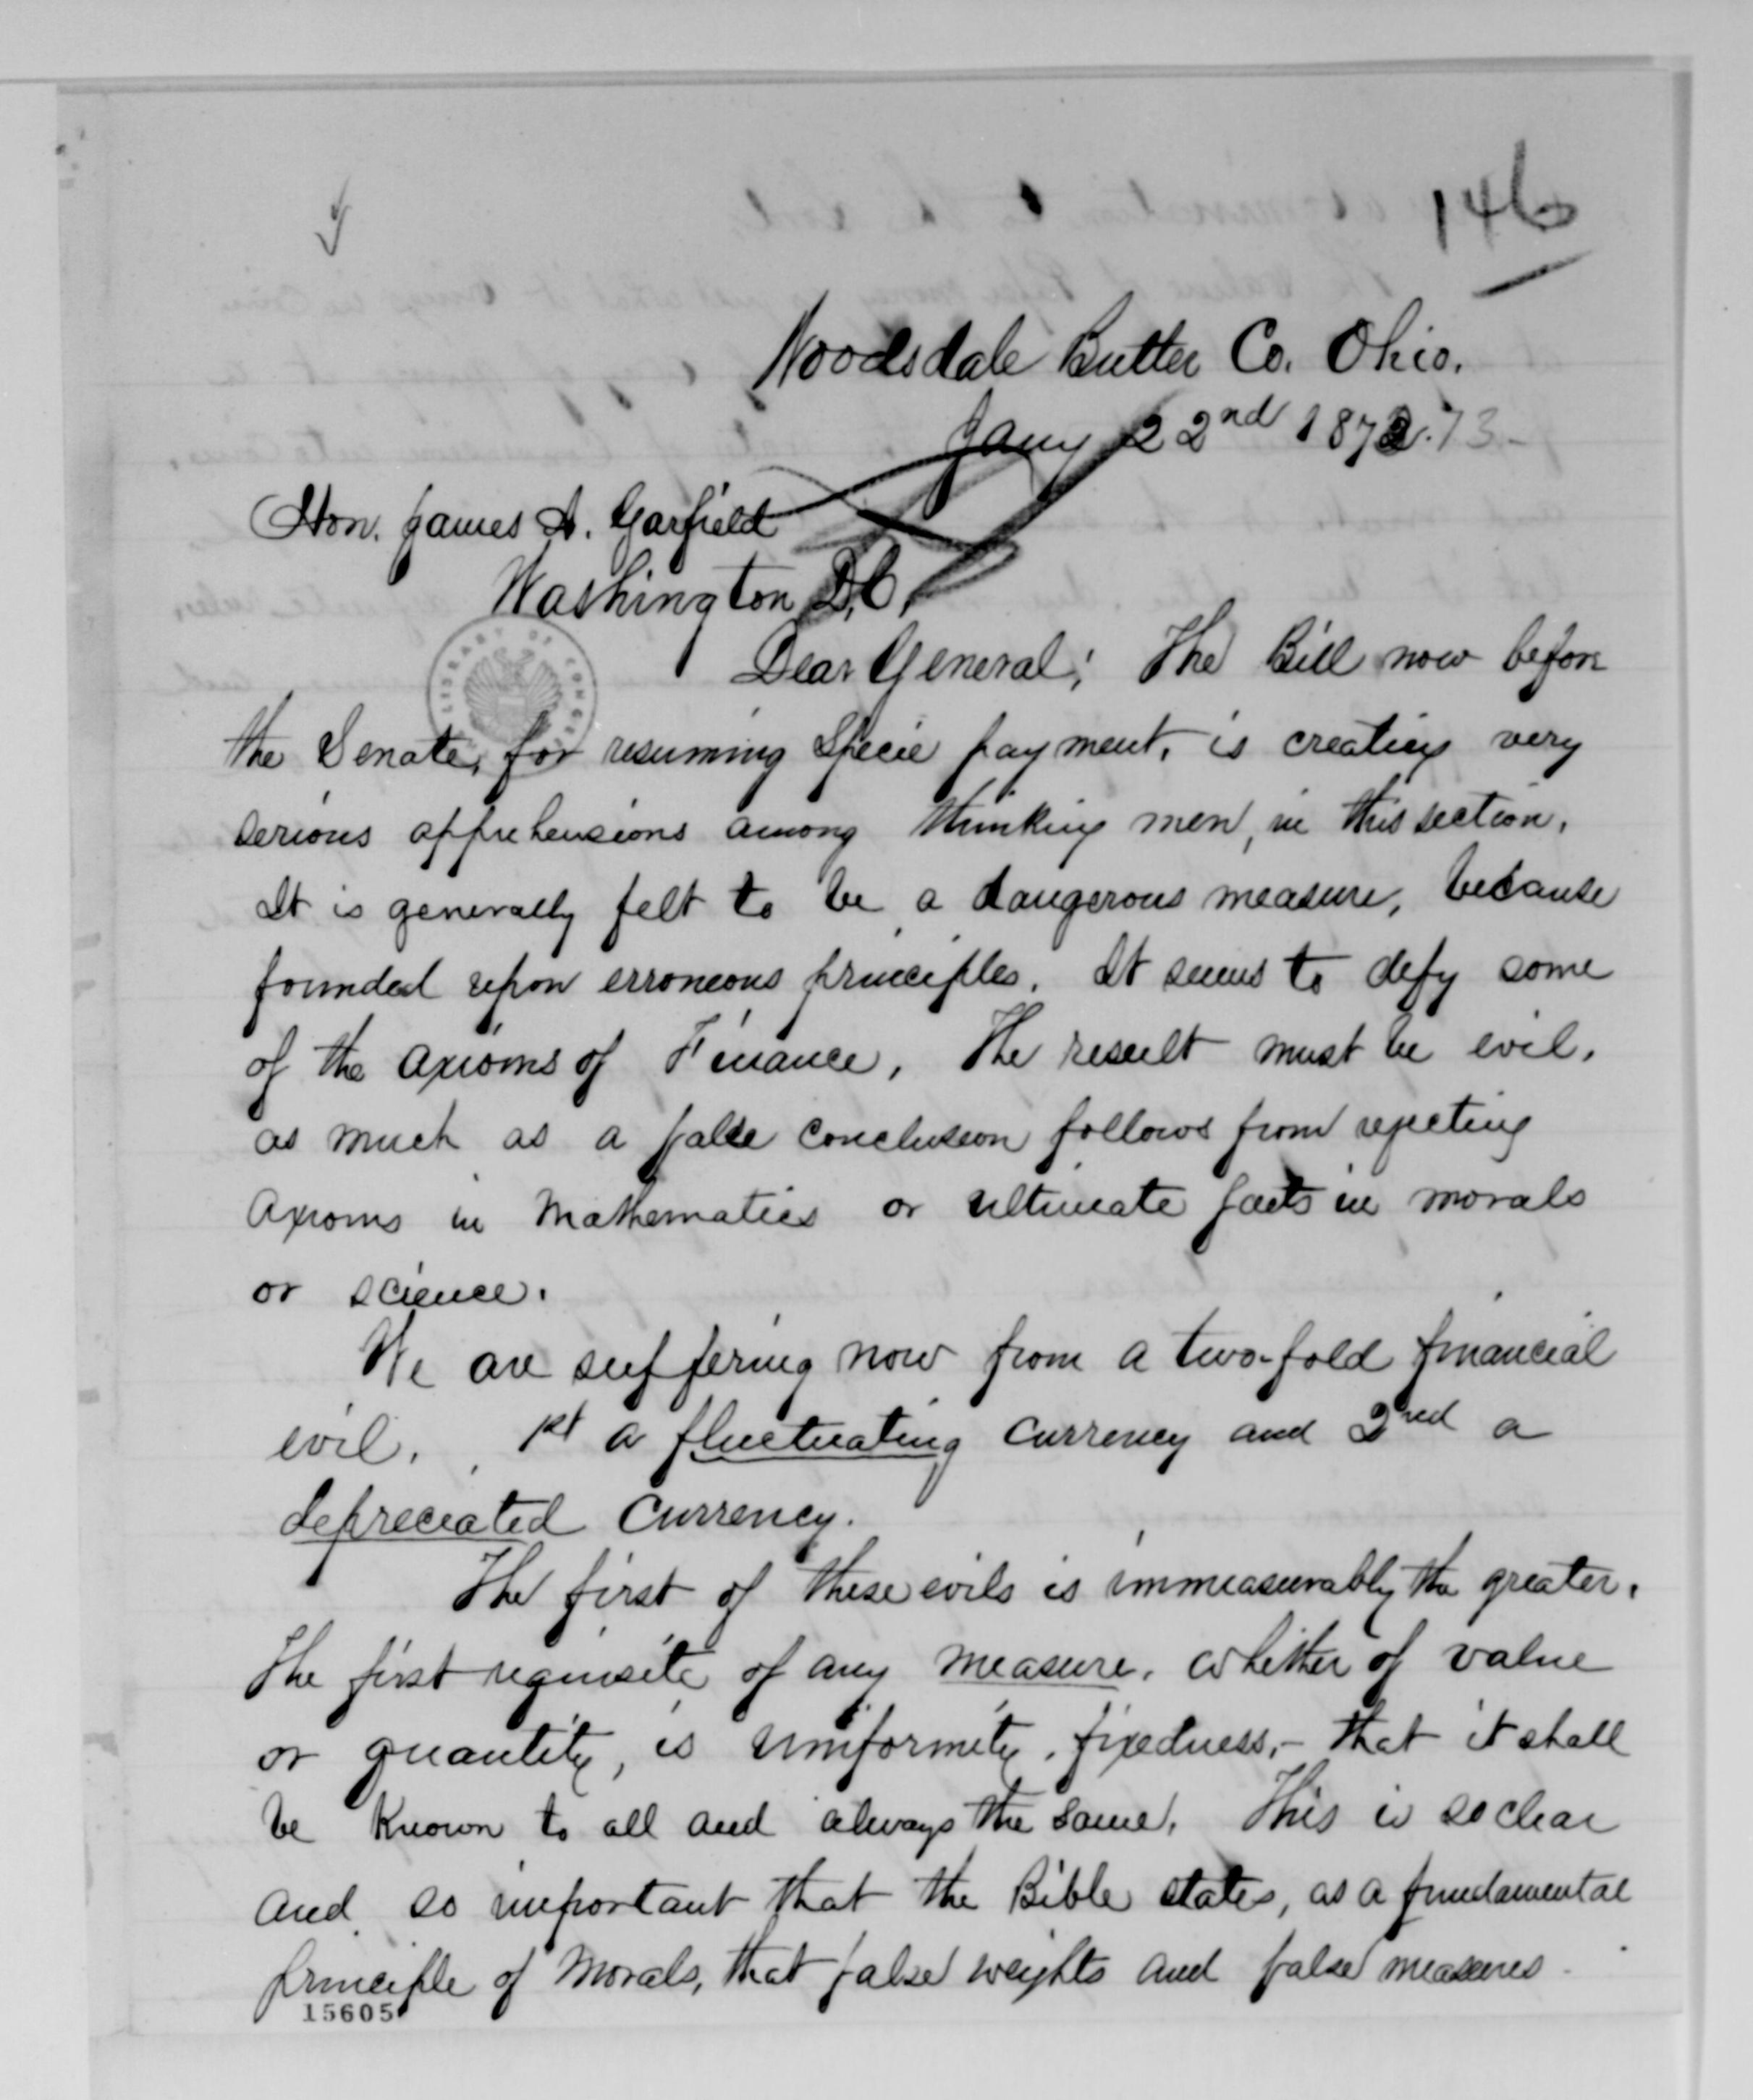 146
Woodsdale Butler Co. Ohio.
Jany 22nd 1872. 73-
Hon. James A. Garfield
Washington D.C.
LIBRARY OF CONGRESS
Dear General; The Bill now before
the Senate, for resuming Specie payment, is creating very
serious apprehensions among thinking men, in this section.
It is generally felt to be a dangerous measure, because
founded upon erroneous principles. It seems to defy some
of the axioms of Finance. The result must be evil,
as much as a false conclusion follows from rejecting
axioms in Mathematics or ultimate facts in morals
or science.
We are suffering now from a two-fold financial
evil. 1st a fluctuating currency and 2nd a
depreciated currency.
The first of these evils is immeasurably the greater.
The first requisite of any measure, whether of value
or quantity, is uniformity, fixedness,- that it shall
be known to all and always the same. This is so clear
and so important that the Bible states, as a fundamental
principle of Morals, that false weights and false measures
15605